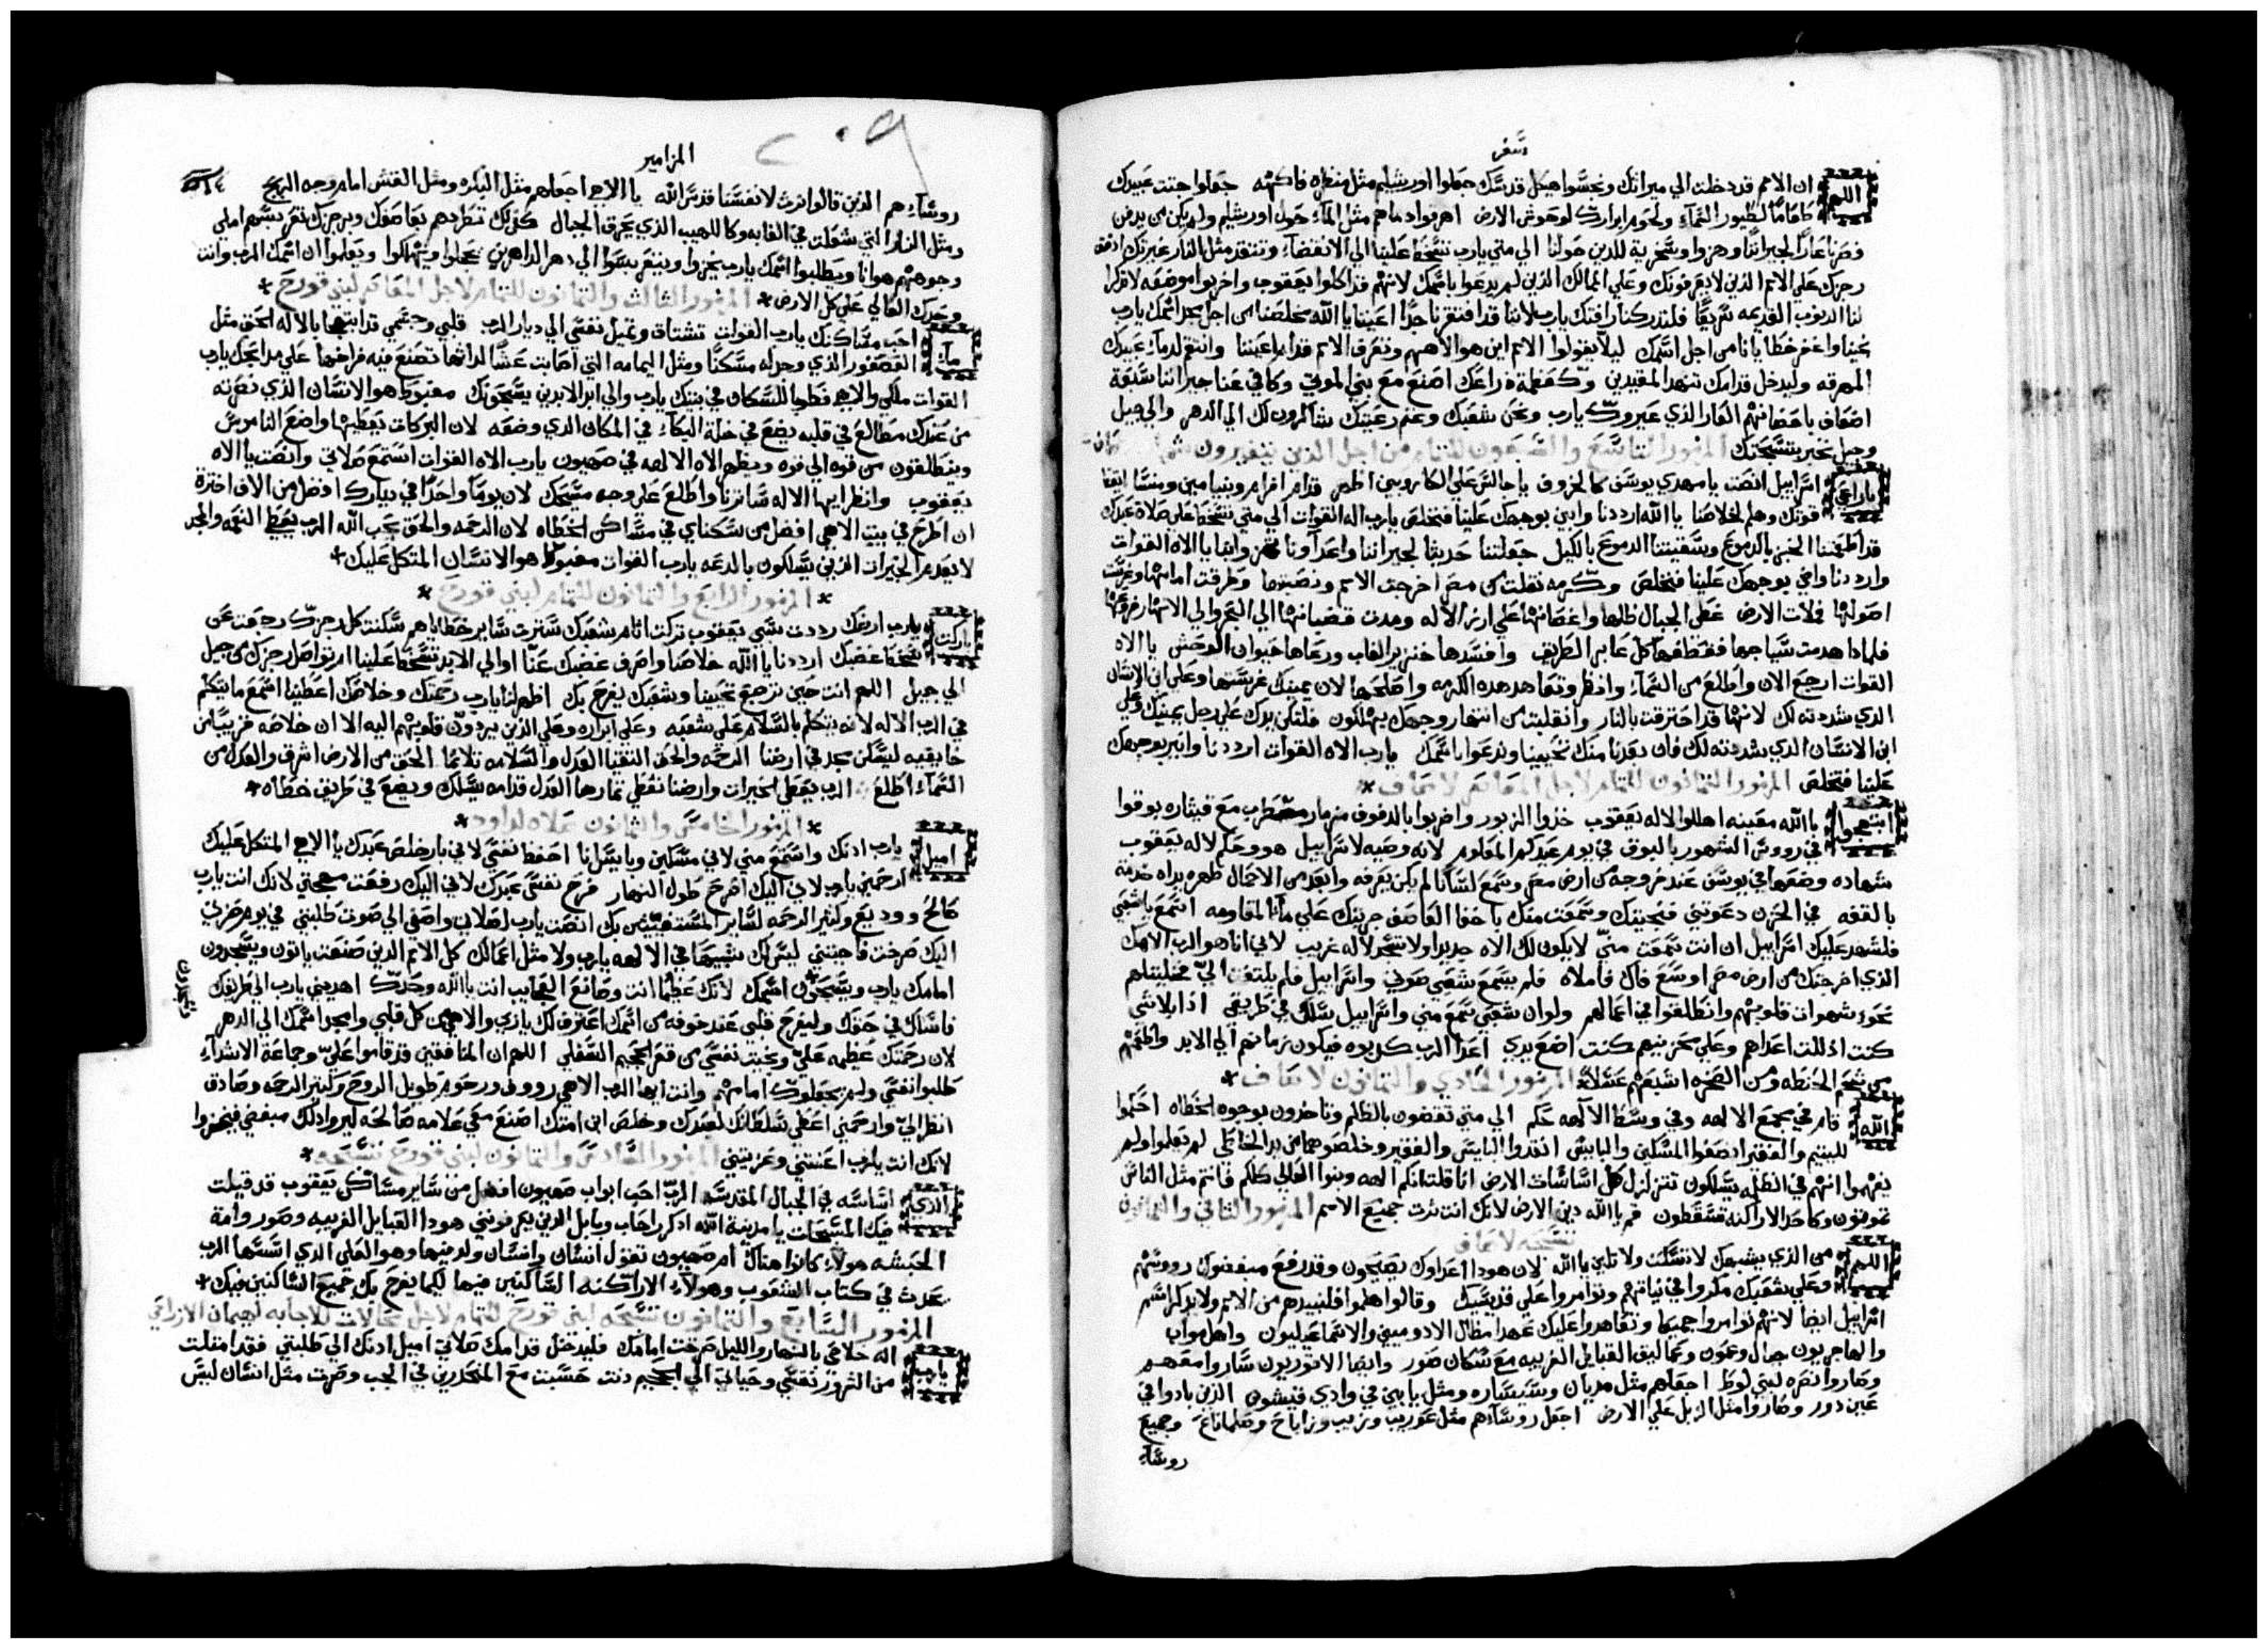 سفر
اللهم ان الامم قد دخلت الي ميراثك ونجسوا هيكل قدسك جعلوا اورشليم مثل منطرة فاكهه جعلوا جثت عبيدك
طعاما لطيور السماء ولحوم ابرارك لوحوش الارض اهرقوا دماهم مثل الماء حول اورشليم ولم يكن من يدفن
فصرنا عارا لجيراننا وهزوا وسخرية للذين حولنا الي متي يارب تسخط علينا الي الانقضاء وتتقد مثل النار غيرتك
رجزك علي الامم الذين لا يعرفونك وعلي الممالك الذين لم يدعوا باسمك لانهم قد اكلوا يعقوب واخربوا موضعه لا تذكر
لنا الذنوب القديمه سريعا فلتدركنا رافتك يارب لاننا قد افتقرنا جدا اعيننا يا الله مخلصنا من اجل مجد اسمك يارب
نجينا واغفر خطايانا من اجل اسمك ليلا يقولوا الامم اين هو الاههم وتعرف الامم قدام اعيننا وانتقم لدماء عبيدك
المهرقه وليدخل قدامك تنهد المقيدين وكعظمة ذراعك اصنع مع بني الموتي وكافي عنا جيراننا سبعة
اضعاف باحضانهم العار الذي عيروك يارب ونحن شعبك وغنم رعيتك شاكرون لك الي الدهر والي جيل
وجيل نخبر بتسبحتك المزمور التاسع والسبعون للتمام من اجل الذين يتغيرون
ياراعي اسراييل انصت يا مهدي يوسف كالخروف يا جالس علي الكاروبيم اظهر قدام افرام وبنيامين ومنسا
قوتك وهلم لخلاصنا يا الله ارددنا وانير بوجهك علينا فنخلص يارب اله القوات الي متي تسخط علي صلاة عبدك
قد اطعمتنا الخبز بالدموع وسقيتنا الدموع بالكيل جعلتنا حديثا لجيراننا واعداونا يا الاه القوات
وارددنا وانير بوجهك علينا فنخلص وكرمه نقلت من مصر اخرجت الامم ونصبتها وطرقت امامها وغرست
اصولها فملات الارض غطي الجبال ظلها واغصانها علي ارز الاله ومدت قضبانها الي البحر والي الانهار
فلماذا هدمت سياجها فقطفها كل عابر الطريق وافسدها خنزير الغاب ورعاها حيوان الوحش يا الاه
القوات ارجع الان واطلع من السماء وانظر وتعاهد هذه الكرمه واصلحها لان يمينك غرستها وعلي ابن الانسان
الذي شددته لك لانها قد احترقت بالنار وانقلبت من انتهار وجهك يهلكون فلتكن يدك علي رجل يمينك وعلي
ابن الانسان الذي شددته لك فان بعدنا منك تحيينا وندعوا باسمك يارب الاه القوات ارددنا وانير بوجهك
علينا فنخلص المزمور الثمانون للتمام لاجل المعاصر لاساف
ابتهجوا بالله معيننا هللوا لاله يعقوب خذوا الزبور واضربوا بالدفوف مزمار مطرب مع قيثاره بوقوا
في رووس الشهور بالبوق في يوم عيدكم المعلوم لانه وصيه لاسراييل هو وحكم لاله يعقوب
شهاده وضعها في يوسف عند خروجه من ارض مصر وسمع لسانا لم يكن يعرفه وابعد من الاحمال ظهره يداه خدمة
بالقفه في الحزن دعوتني فنجيتك وسمعت منك باخفا العاصف جربتك علي ما المقاومه اسمع يا شعبي
فلنشهد عليك اسراييل ان انت سمعت مني لا يكون لك الاه جديد اولا تسجد لاله غريب لاني انا هو الرب الاهك
الذي اخرجتك من ارض مصر اوسع فاك فاملاه فلم يسمع شعبي صوتي واسراييل فلم يلتفت الي فخليتهم
نحو شهوات قلوبهم وانطلقوا في اعمالهم ولو ان شعبي سمع مني واسراييل سلك في طريقي اذا بلاشي
كنت اذللت اعداهم وعلي محزنيهم كنت اضع يدي اعدا الرب كذبوه فيكون زمانهم الي الابد واطعمهم
من شحم الحنطه ومن الصخره اشبعهم عسلا المزمور الحادي والثمانون لاساف
الله قام في مجمع الالهه وفي وسط الالهه حكم الي متي تقضون بالظلم وتاخذون بوجوه الخطاه احكموا
لليتيم والفقير انصفوا المسكين والبايس انقذوا البايس والفقير وخلصوهما من يد الخاطي لم يعلموا ولم
يفهموا انهم في الظلمه يسلكون تتزلزل كل اساسات الارض انا قلت انكم الهه وبنوا العالي كلكم فانتم مثل الناس
تموتون وكاحد الاراكنه تسقطون قم يا الله دين الارض لانك انت ترث جميع الامم المزمور الثاني والثمانون
تسبحه لاساف
اللهم من الذي يشبهك لا تسكت ولا تلين يا الله لان هوذا اعداوك يضجون وقد رفع مبغضوك رووسهم
وعلي شعبك مكروا في نياتهم وتوامروا علي قديسيك وقالوا هلموا فلنبيدهم من الامم ولا يذكر اسم
اسراييل ايضا لانهم توامروا جميعا وتعاهدوا عليك عهدا مظال الادوميين والاسماعيليون واهل مواب
والهاجريون جبال وعمون وعماليق القبايل الغريبه مع سكان صور وايضا الاثوريون ساروا معهم
وصاروا نصره لبني لوط اجعلهم مثل مديان وسيساره ومثل يابين في وادي قيشون الذين بادوا في
عين دور وصاروا مثل الزبل علي الارض اجعل روساهم مثل عوريب وزيب وزاباح وصلماناع وجميع
روساء
٢٠٩
المزامير
روساءهم الذين قالوا نرث لانفسنا قدس الله يا الاهي اجعلهم مثل البكره ومثل القش امام وجه الريح
ومثل النار التي شعلت في الغابه وكاللهيب الذي يحرق الجبال كذلك تطردهم بعاصفك وبرجزك تقربسهم املي
وجوههم هوانا ويطلبوا اسمك يارب يخزوا ويتقربسوا الي دهر الداهرين يخجلوا ويهلكوا ويعلموا ان اسمك الرب وانت
وحدك العالي علي كل الارض المزمور الثالث والثمانون للتمام لاجل المعاصر لبني قورح
ما احب مساكنك يارب القوات تشتاق وتميل نفسي الي ديار الرب قلبي وجسمي قد ابتهجا بالاله الحق مثل
العصفور الذي وجد له مسكنا ومثل اليمامه التي اصابت عشا لذاتها تصنع فيه فراخها علي مذابحك يارب
القوات ملكي والاهي فطوبا للسكان في بيتك يارب والي ابد الابدين يسبحونك مغبوط هو الانسان الذي نصرته
من عندك مطالع في قلبه يضع في خلة البكاء في المكان الذي وضعه لان البركات يعطيها واضع الناموس
وينطلقون من قوه الي قوه ويظهر الاه الالهه في صهيون يارب الاه القوات استمع صلاتي وانصت يا الاه
يعقوب وانظر ايها الاله ساترنا واطلع علي وجه مسيحك لان يوما واحدا في ديارك افضل من الاف اخترت
ان اطرح في بيت الاهي افضل من سكناي في مساكن الخطاه لان الرحمه والحق يحب الله الرب يعطي النعمه والمجد
لا يعدم الخيرات الذين يسلكون بالدعه يارب القوات مغبوط هو الانسان المتكل عليك
المزمور الرابع والثمانون للتمام لبني قورح
باركت يارب ارضك رددت سبي يعقوب تركت اثام شعبك سترت ساير خطاياهم سكنت كل رجزك رجعت عن
سخط غضبك ارددنا يا الله خلاصنا واصرف غضبك عنا اوالي الابد تسخط علينا ام تواصل رجزك من جيل
الي جيل اللهم انت حين ترجع تحيينا وشعبك يفرح بك اظهر لنا يارب رحمتك وخلاصك اعطينا اسمع ما يتكلم
في الرب الاله لانه يتكلم بالسلام علي شعبه وعلي ابراره وعلي الذين يردون قلوبهم اليه الا ان خلاصه قريبا من
خايفيه ليسكن مجد في ارضنا الرحمه والحق التقيا العدل والسلامه تلاثما الحق من الارض اشرق والعدل من
السماء اطلع الرب يعطي الخيرات وارضنا تعطي ثمارها العدل قدامه يسلك ويضع في طريق خطاه
المزمور الخامس والثمانون صلاه لداود
اميل يارب ادنك واستمع مني لاني مسكين وبايس انا احفظ نفسي لاني بار خلص عبدك يا الاهي المتكل عليك
ارحمني يارب لاني اليك اصرخ طول النهار فرح نفس عبدك لاني اليك رفعت مهجتي لانك انت يارب
صالح ووديع وكثير الرحمه لساير المستغيثين بك انصت يارب لصلاتي واصغي الي صوت طلبتي في يوم حزني
اليك صرخت فاجبتني ليس لك شبيها في الالهه يارب ولا مثل اعمالك كل الامم الذين صنعت ياتون ويسجدون
امامك يارب ويسبحون اسمك لانك عظيم انت وصانع العجايب انت يا الله وحدك اهديني يارب الي طريقك
فاسلك في حقك وليفرح قلبي عند خوفه من اسمك اعترف لك ياربي والاهي من كل قلبي وامجد اسمك الي الدهر
لان رحمتك عظيمه علي ونجيت نفسي من قعر الجحيم السفلي اللهم ان المنافقين قد قاموا علي وجماعة الاشداء
طلبوا نفسي ولم يجعلوك امامهم وانت ايها الرب الاهي رووف ورحوم طويل الروح وكثير الرحمه وصادق
انظر الي وارحمني اعطي سلطانك لعبدك وخلص ابن امتك اصنع معي علامه صالحه ليروا ذلك مبغضي فيخزوا
لانك انت يارب اعنتني وعزيتني المزمور السادس والثمانون لبني قورح تسبحه
الذي اساسه في الجبال المقدسه الرب احب ابواب صهيون افضل من ساير مساكن يعقوب قد قيلت
فيك المسبحات يا مدينة الله اذكر راحاب وبابل الذين يعرفونني هوذا القبايل الغريبه وصور وامة
الحبشه هولاء كانوا هناك ام صهيون تقول انسان وانسان ولد فيها وهو العلي الذي اسسها الرب
يحدث في كتاب الشعوب وهولاء الاراكنه الساكنين فيها لكيما يفرح بك جميع الساكنين فيك
المزمور السابع والثمانون تسبحه لبني قورح للتمام لاجل محالات للاجابه لهيمان الازراحي
يارب اله خلاصي بالنهار والليل صرخت امامك فليدخل قدامك صلاتي اميل ادنك الي طلبتي فقد امتلت
من الشرور نفسي وحياتي الي الجحيم دنت حسبت مع المنحدرين في الجب وصرت مثل انسان ليس